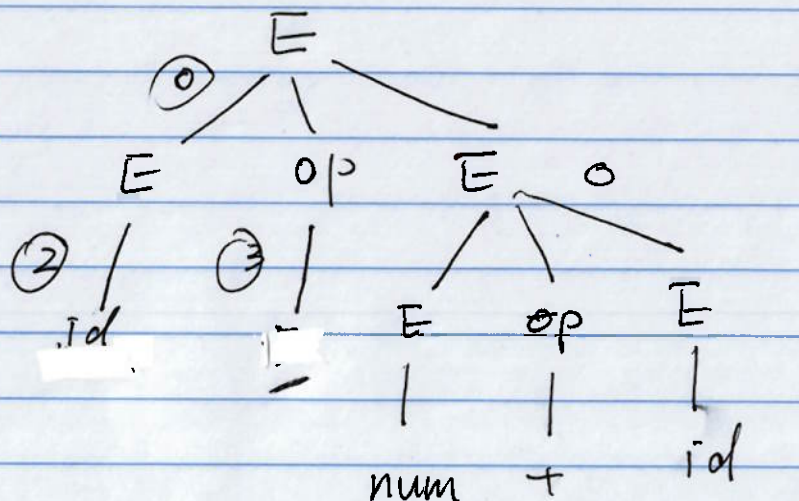 E
⓪
E op E 0
② ③
id - E op E
num + id